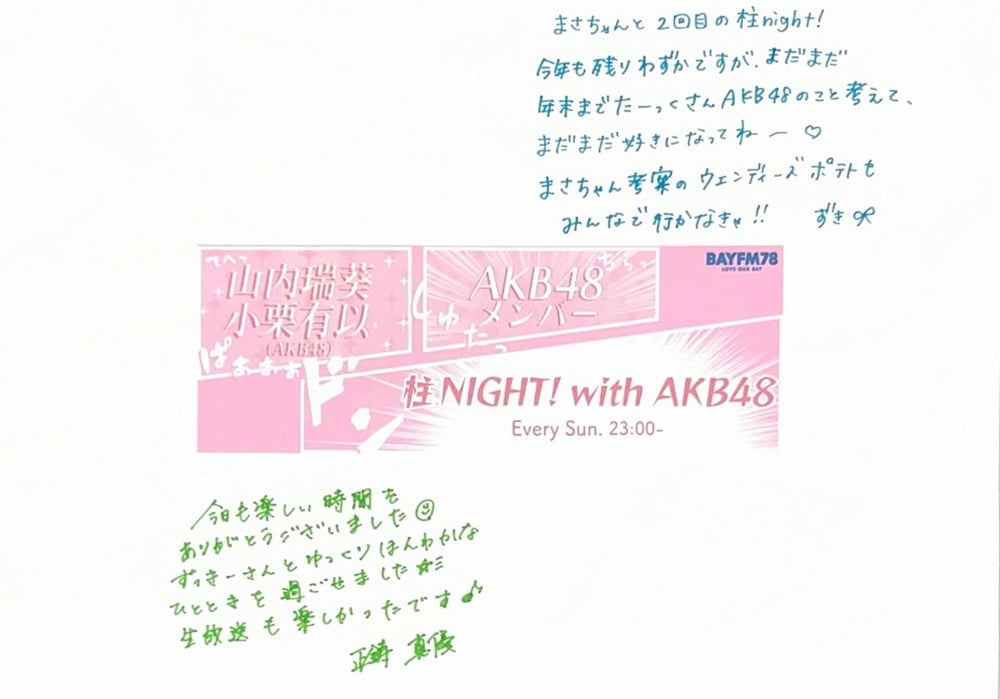 まさちゃんと2回目の柱night!
今年も残りわずかですが、まだまだ
年末までたーっくさんAKB48のこと考えて、
まだまだ好きになってねー♡
まさちゃん考案のウェンディーズポテトも
みんなで行かなきゃ!! ずき
てへっ
山内瑞葵
小栗有以
(AKB48)
ぱぁぁぁぁ
AKB48
メンバー
ちらっ
しゅたっ
BAYFM78
LOVE OUR BAY
ド
柱NIGHT! with AKB48
Every Sun. 23:00-
今日も楽しい時間を
ありがとうございました☺
ずっきーさんとゆっくりほんわかな
ひとときを過ごせました
生放送も楽しかったです♪
正鋳真優